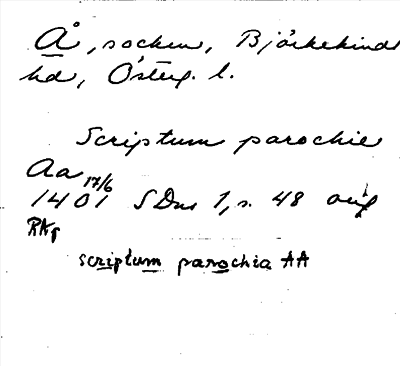 Å, socken, Björkekinds
hd, Österg. l.
Scriptum parochie
Aa
17/6
1401 SDns 1, s. 48 orig
RKp
scriptum parochia AA